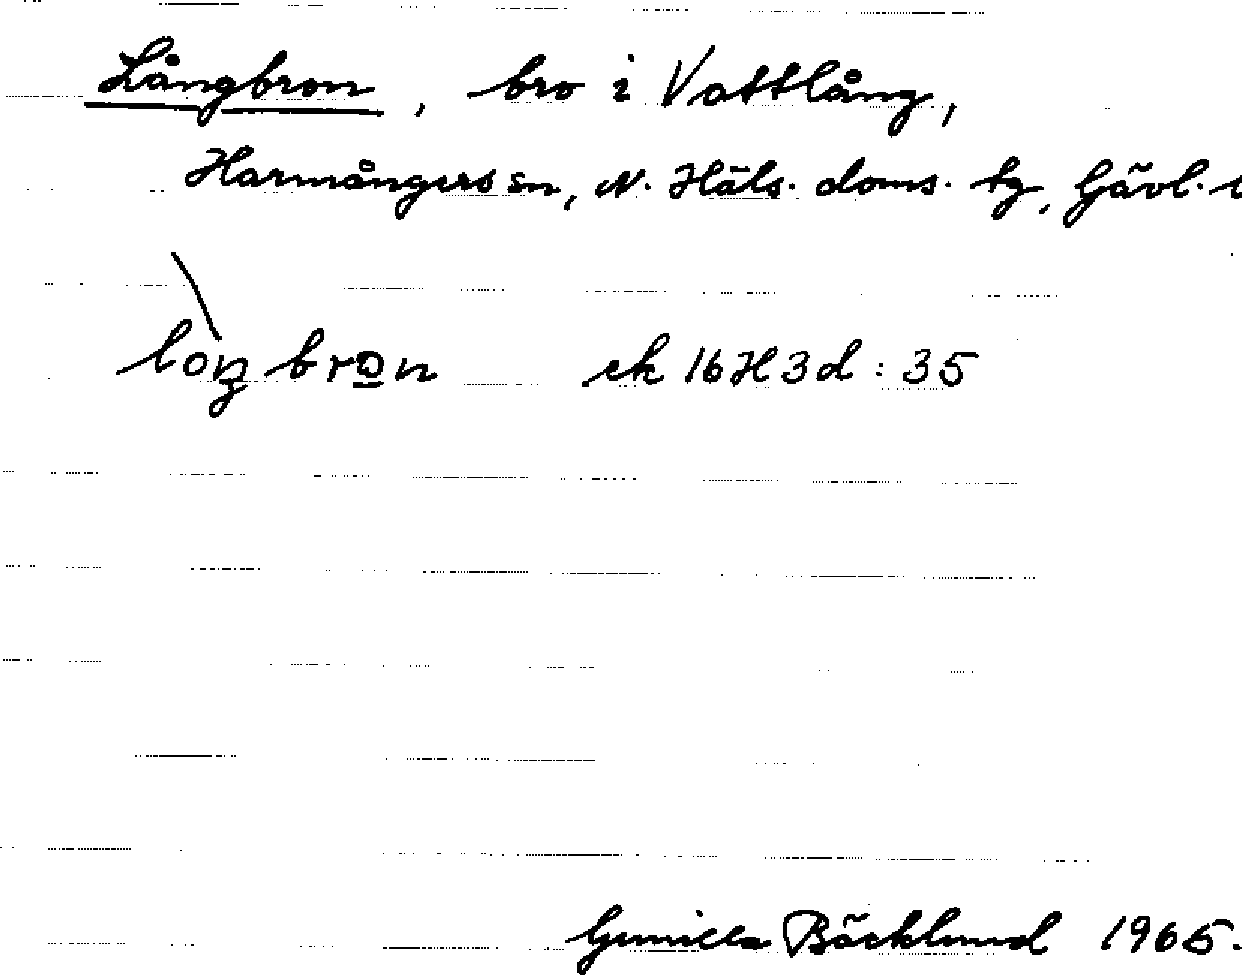 Långbron, bro i Vattlång,
Harmångers sn, N. Häls. doms. tg, Gävl. l
loŋbron ek 16H3d:35
Gunilla Bäcklund 1965.